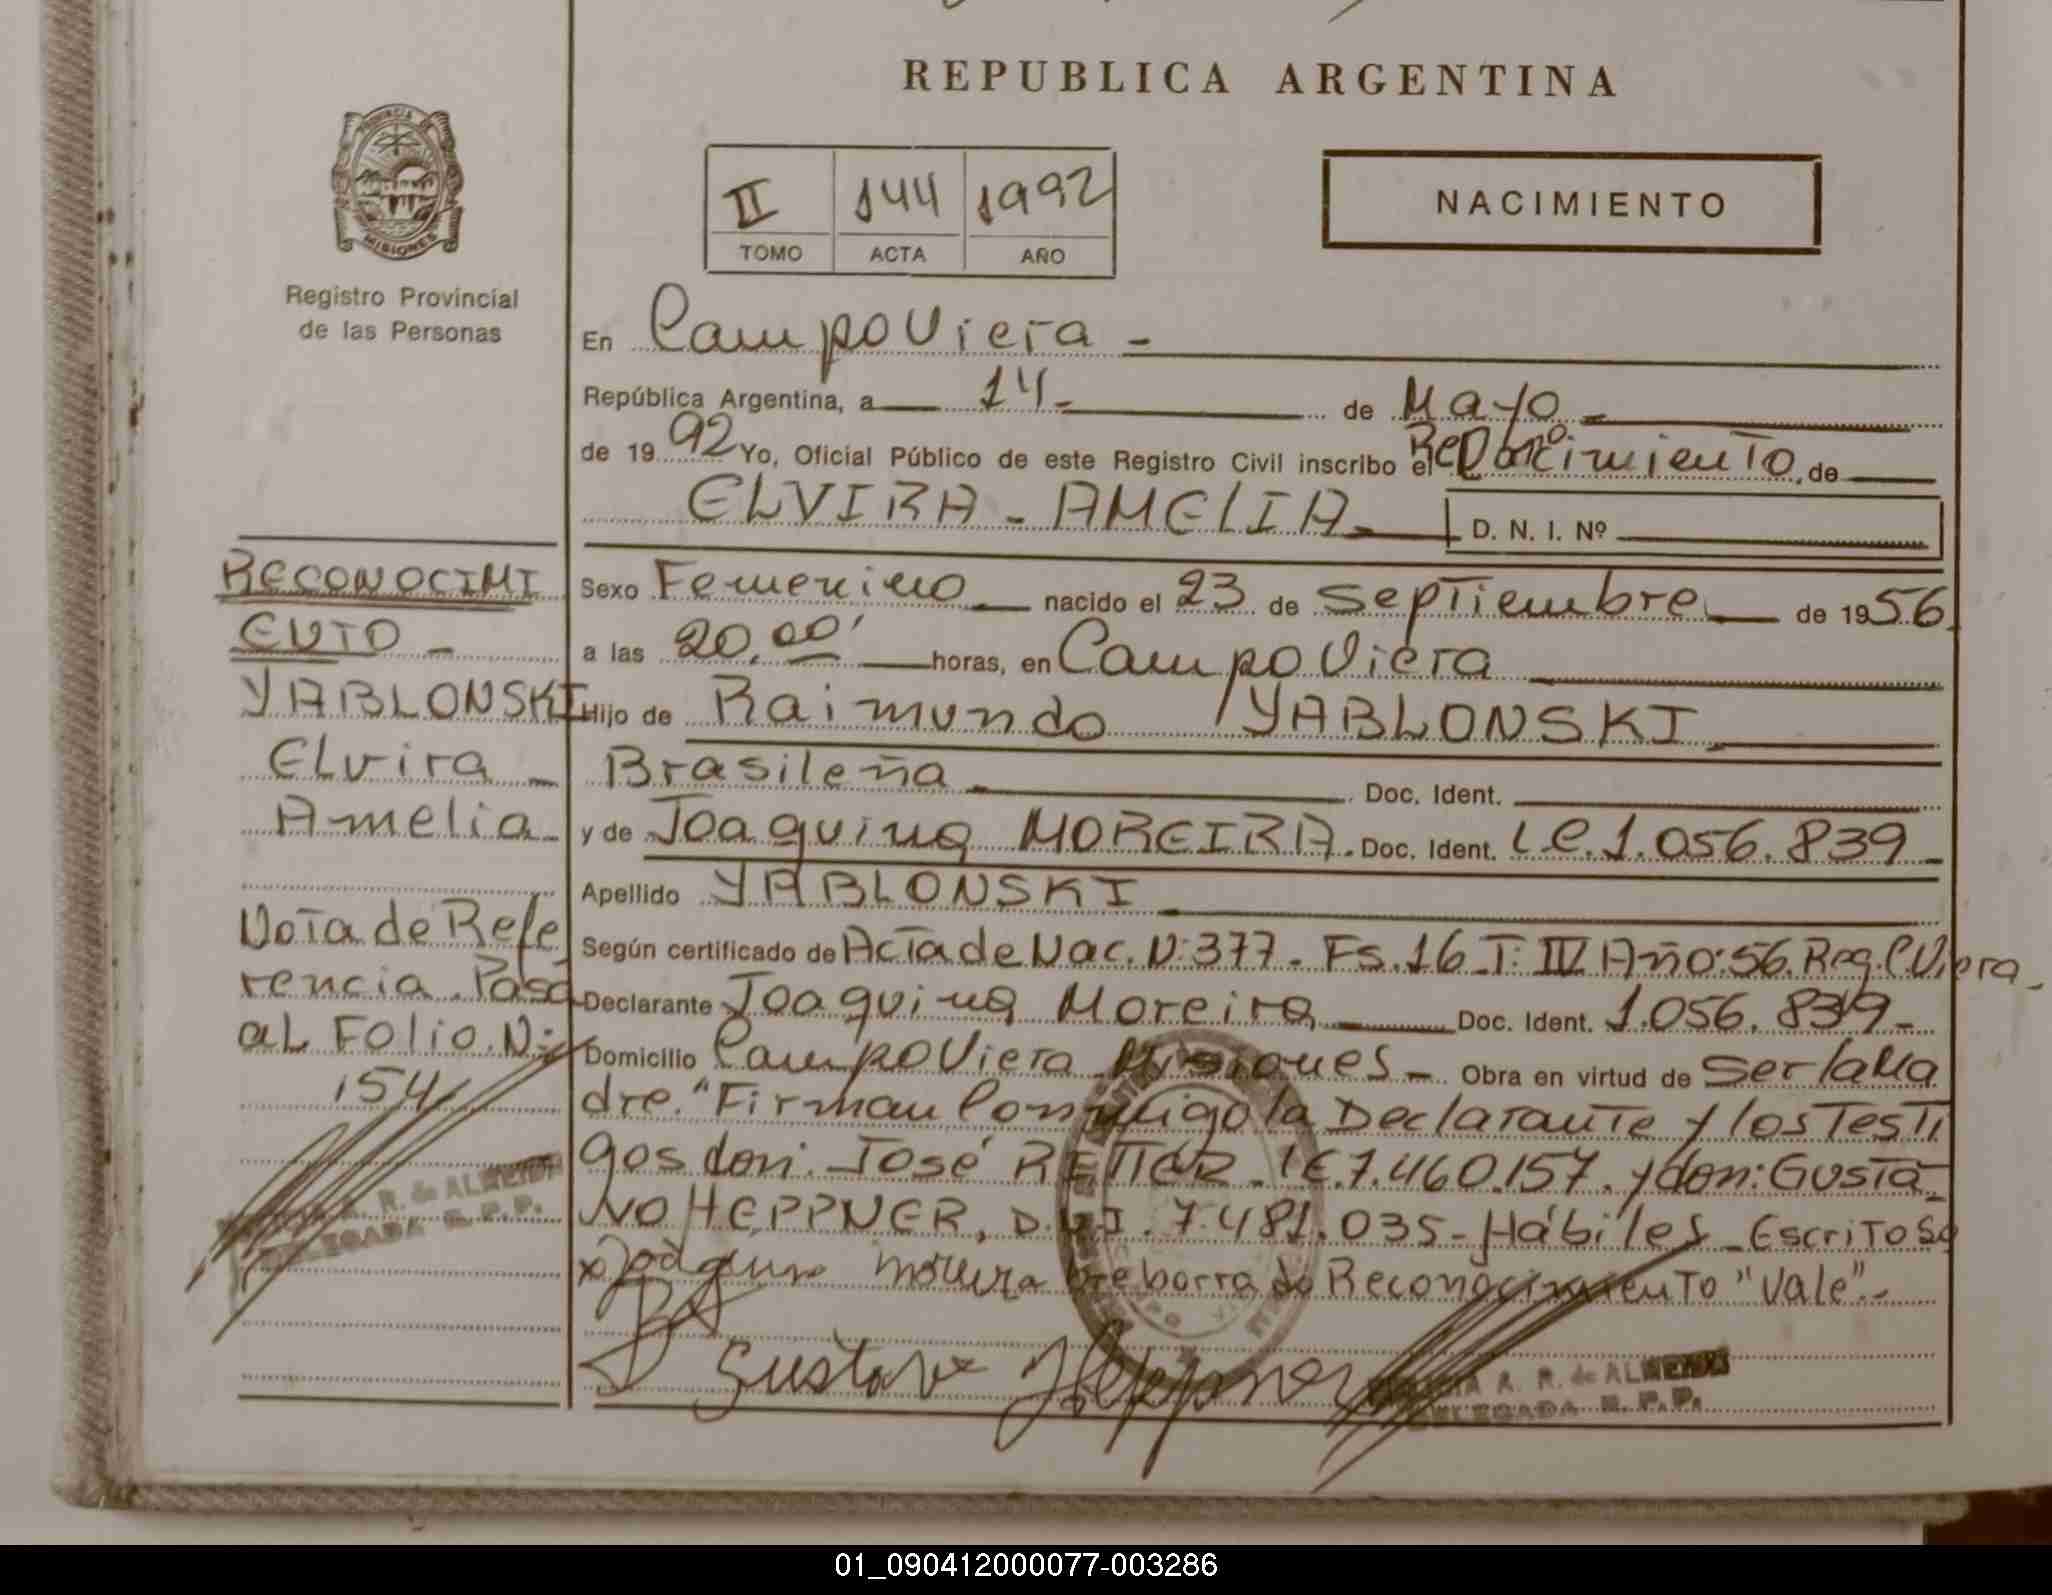 REPUBLICA ARGENTINA
PROVINCIA DE
MISIONES
Registro Provincial
de las Personas
II 144 1992
TOMO ACTA AÑO
NACIMIENTO
En Campo Viera -
República Argentina, a 14 - de Mayo -
de 1992 Yo, Oficial Público de este Registro Civil inscribo el Reconocimiento, de
ELVIRA - AMELIA - D. N. I. Nº
Sexo Femenino nacido el 23 de Septiembre de 1956
a las 20,00' horas, en Campo Viera
Hijo de Raimundo YABLONSKI
Brasileña Doc. Ident.
y de Joaquina MOREIRA. Doc. Ident. L.C. 1.056.839 -
Apellido YABLONSKI
Según certificado de Acta de Nac. N: 377 - Fs. 16 T: IV Año: 56. Reg. C. Viera -
Declarante Joaquina Moreira Doc. Ident. 1.056.839 -
Domicilio Campo Viera Misiones - Obra en virtud de Ser la Ma
dre. "Firman Conmigo la Declarante y los Testi
gos don: José REITER L.E. 7.460.157. y don: Gusta
vo HEPPNER, D.N.I. 7.481.035 - Hábiles - Escrito so
x Joaquina Moreira bre borra do Reconocimiento "Vale" -
Gustavo Heppner
A. R. de ALMEIDA
DELEGADA R.P.P.
RECONOCIMI
ENTO -
YABLONSKI
Elvira -
Amelia -
Nota de Refe
rencia. Pasa
al Folio. N:
154
A. R. de ALMEIDA
DELEGADA R.P.P.
01_090412000077-003286